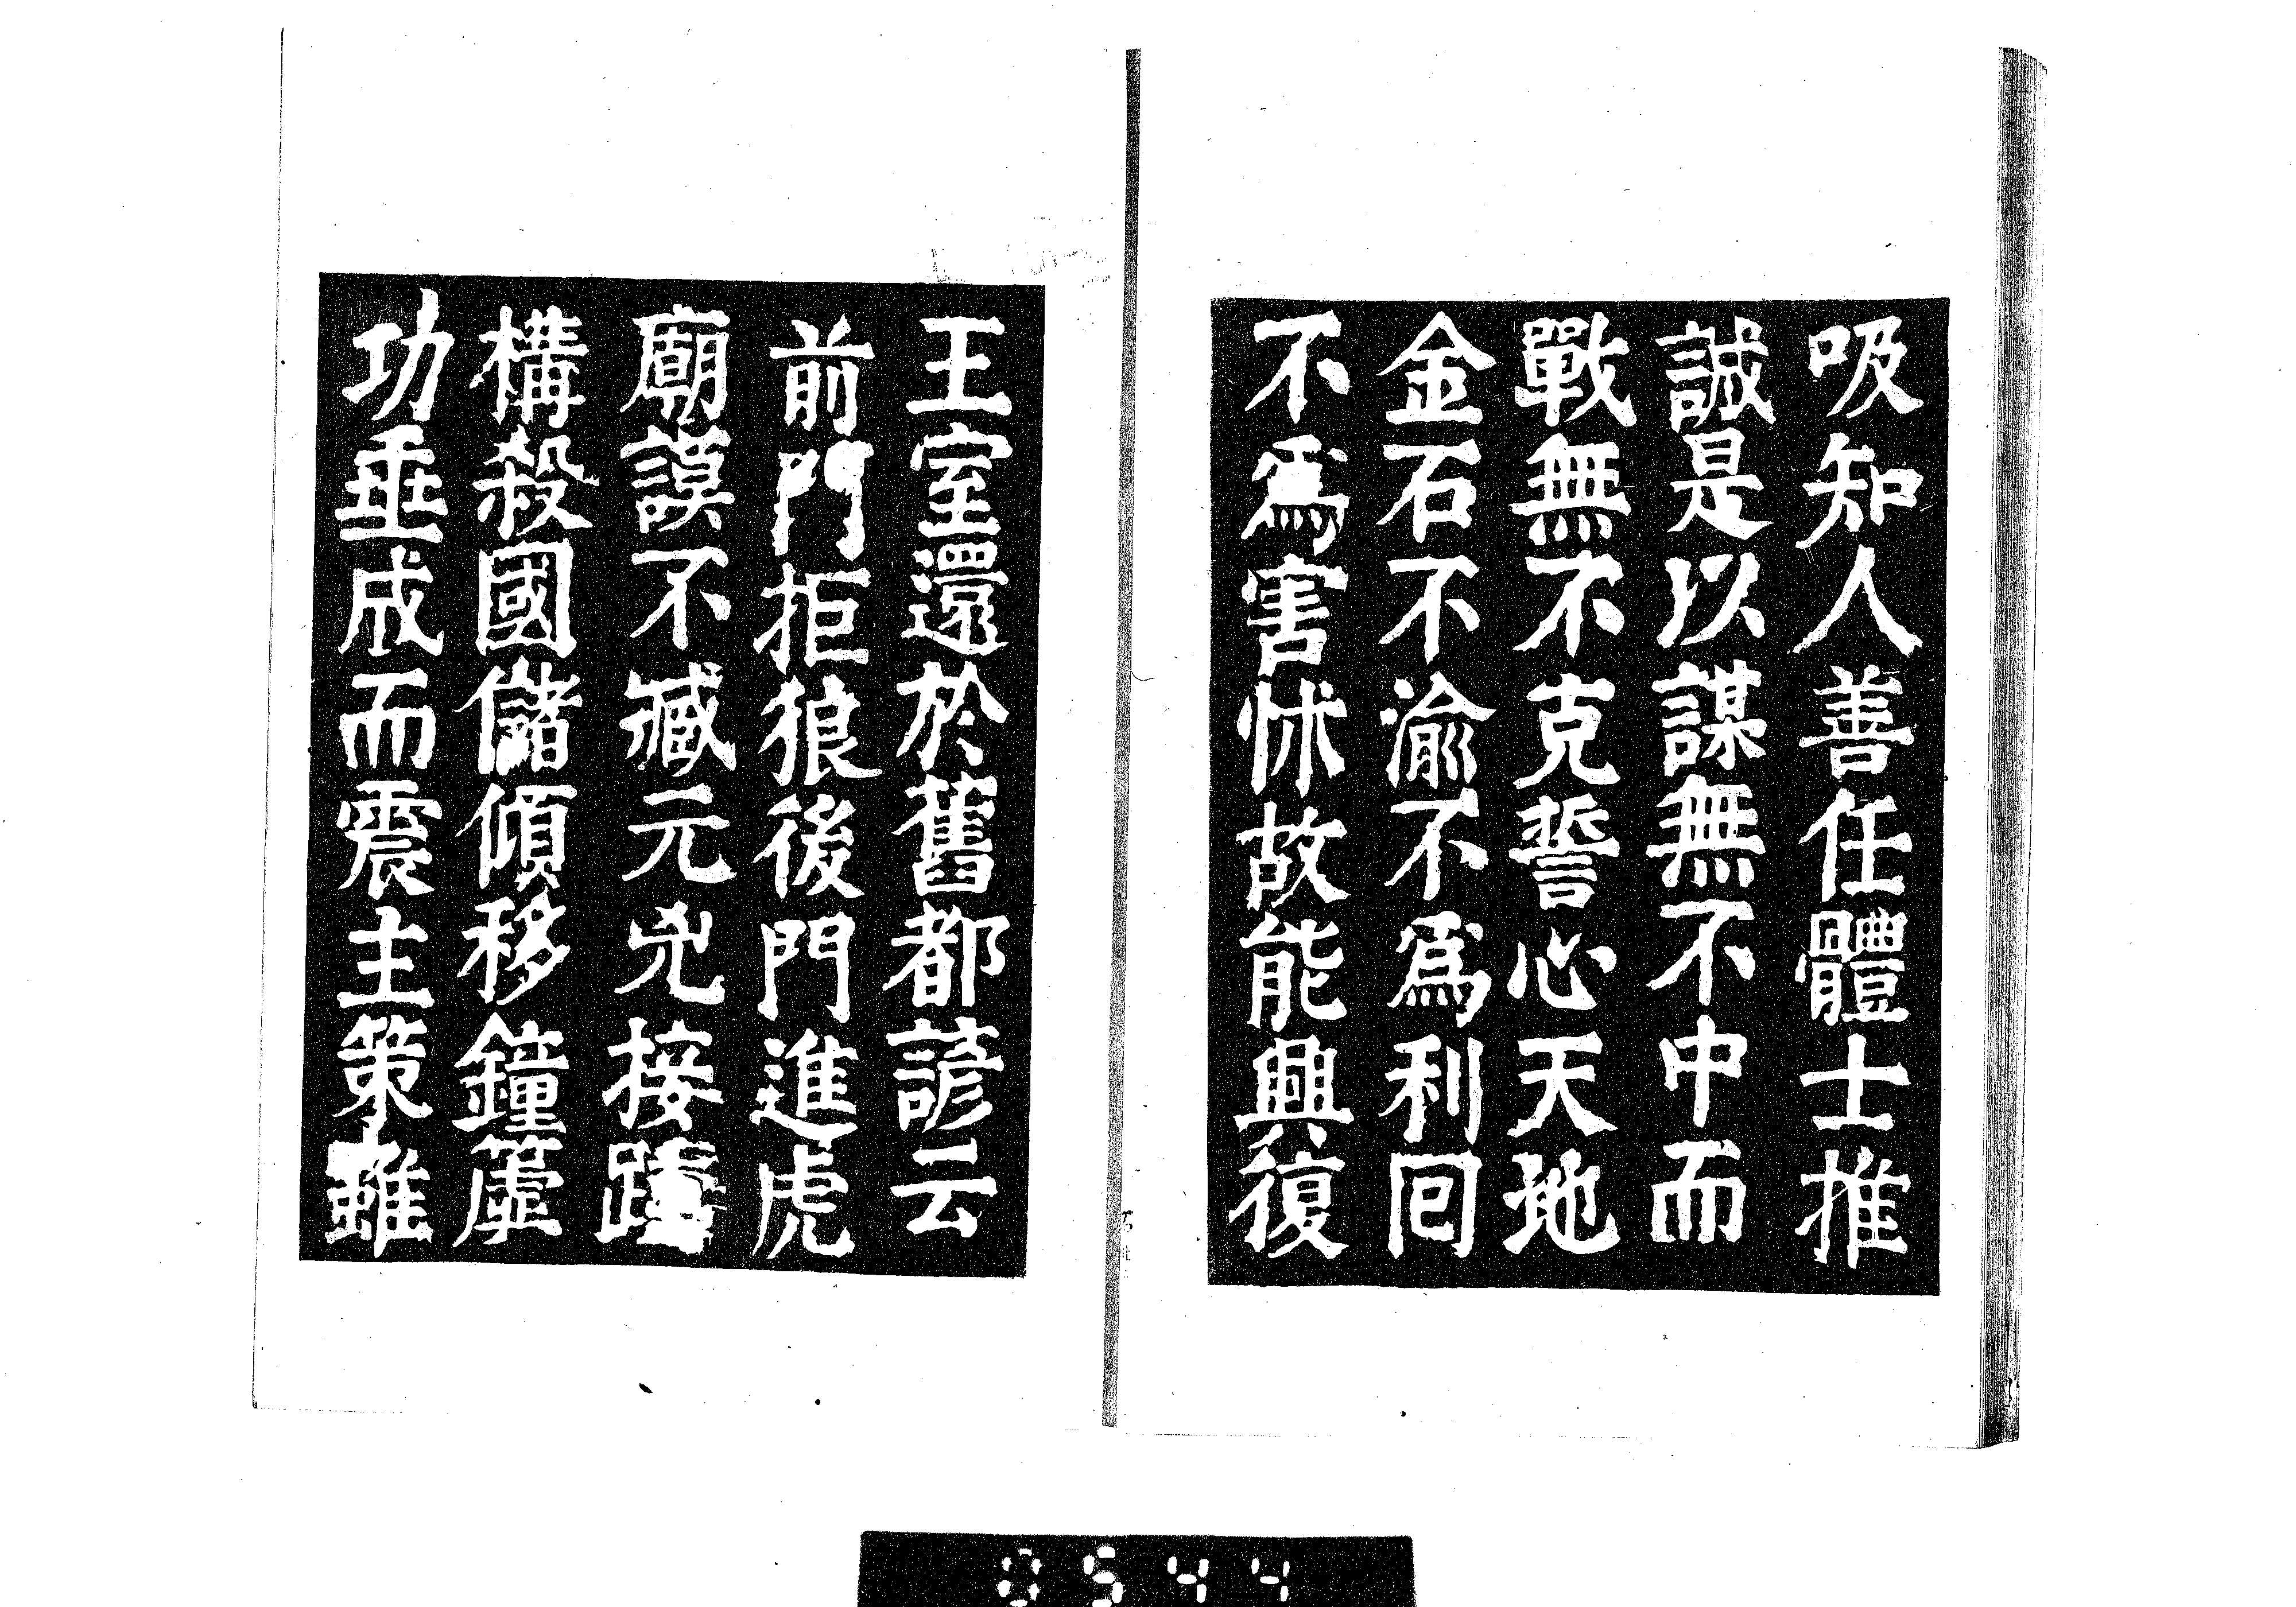 吸知人善任體士推
誠是以謀無不中而
戰無不克誓心天地
金石不渝不爲利回
不爲害怵故能興復
王室還於舊都諺云
前門拒狼後門進虎
廟謨不臧元兇接踵
構殺國儲傾移鐘簴
功垂成而震主策雖
0544